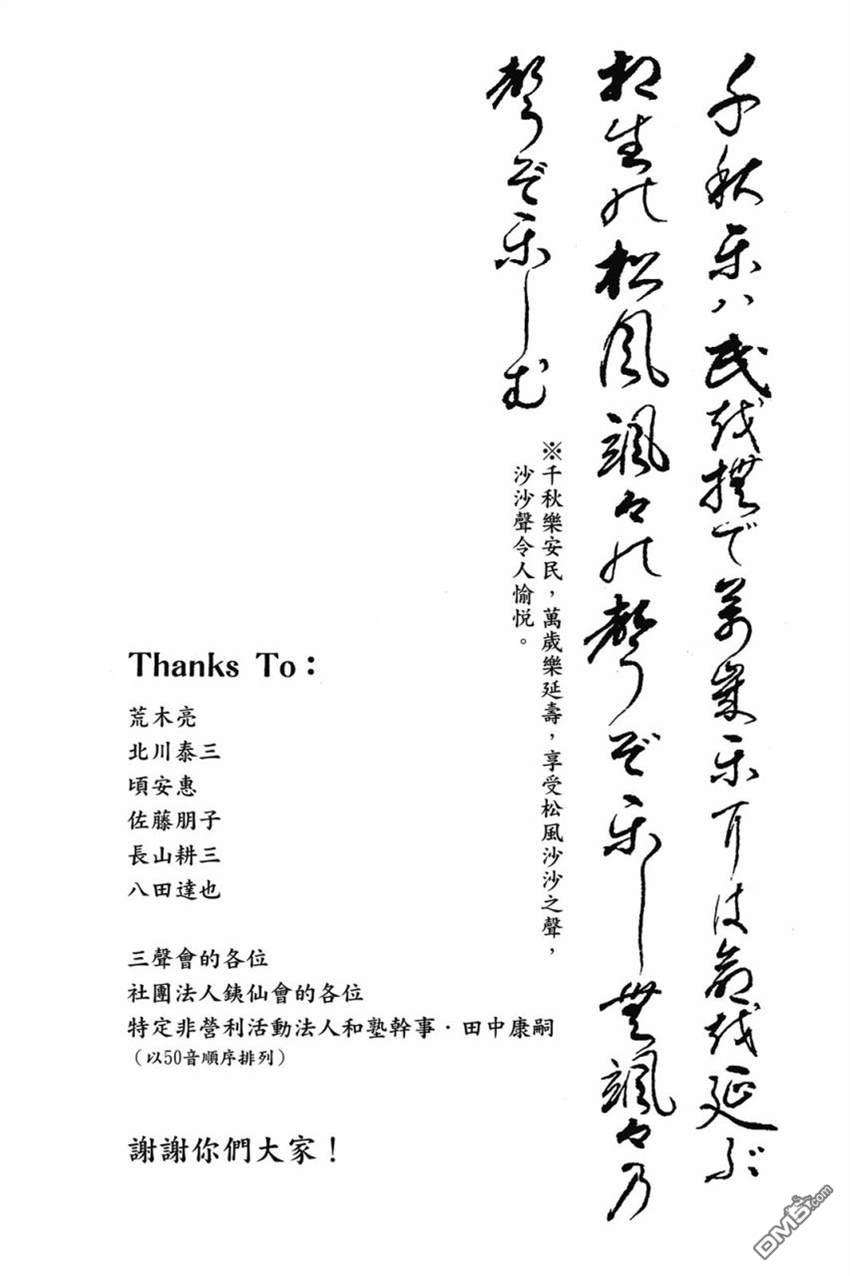 千秋楽ハ民越撫で萬歳楽耳は命越延ぶ
相生能松風颯々能聲ぞ楽し無颯々乃
聲ぞ楽しむ
※千秋樂安民，萬歲樂延壽，享受松風沙沙之聲，
沙沙聲令人愉悦。
Thanks To：
荒木亮
北川泰三
頃安惠
佐藤朋子
長山耕三
八田達也
三聲會的各位
社團法人銕仙會的各位
特定非營利活動法人和塾幹事·田中康嗣
（以50音順序排列）
謝謝你們大家！
DM5.com